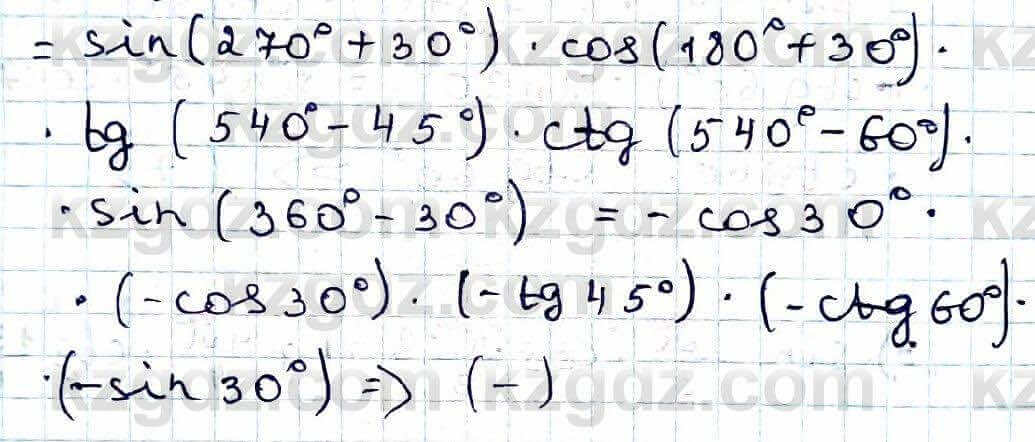 = sin(270° + 30°) · cos(180° + 30°) ·
· tg (540° - 45°) · ctg (540° - 60°) ·
· sin (360° - 30°) = - cos 30° ·
· (-cos 30°) · (-tg 45°) · (-ctg 60°) ·
· (-sin 30°) => (-)